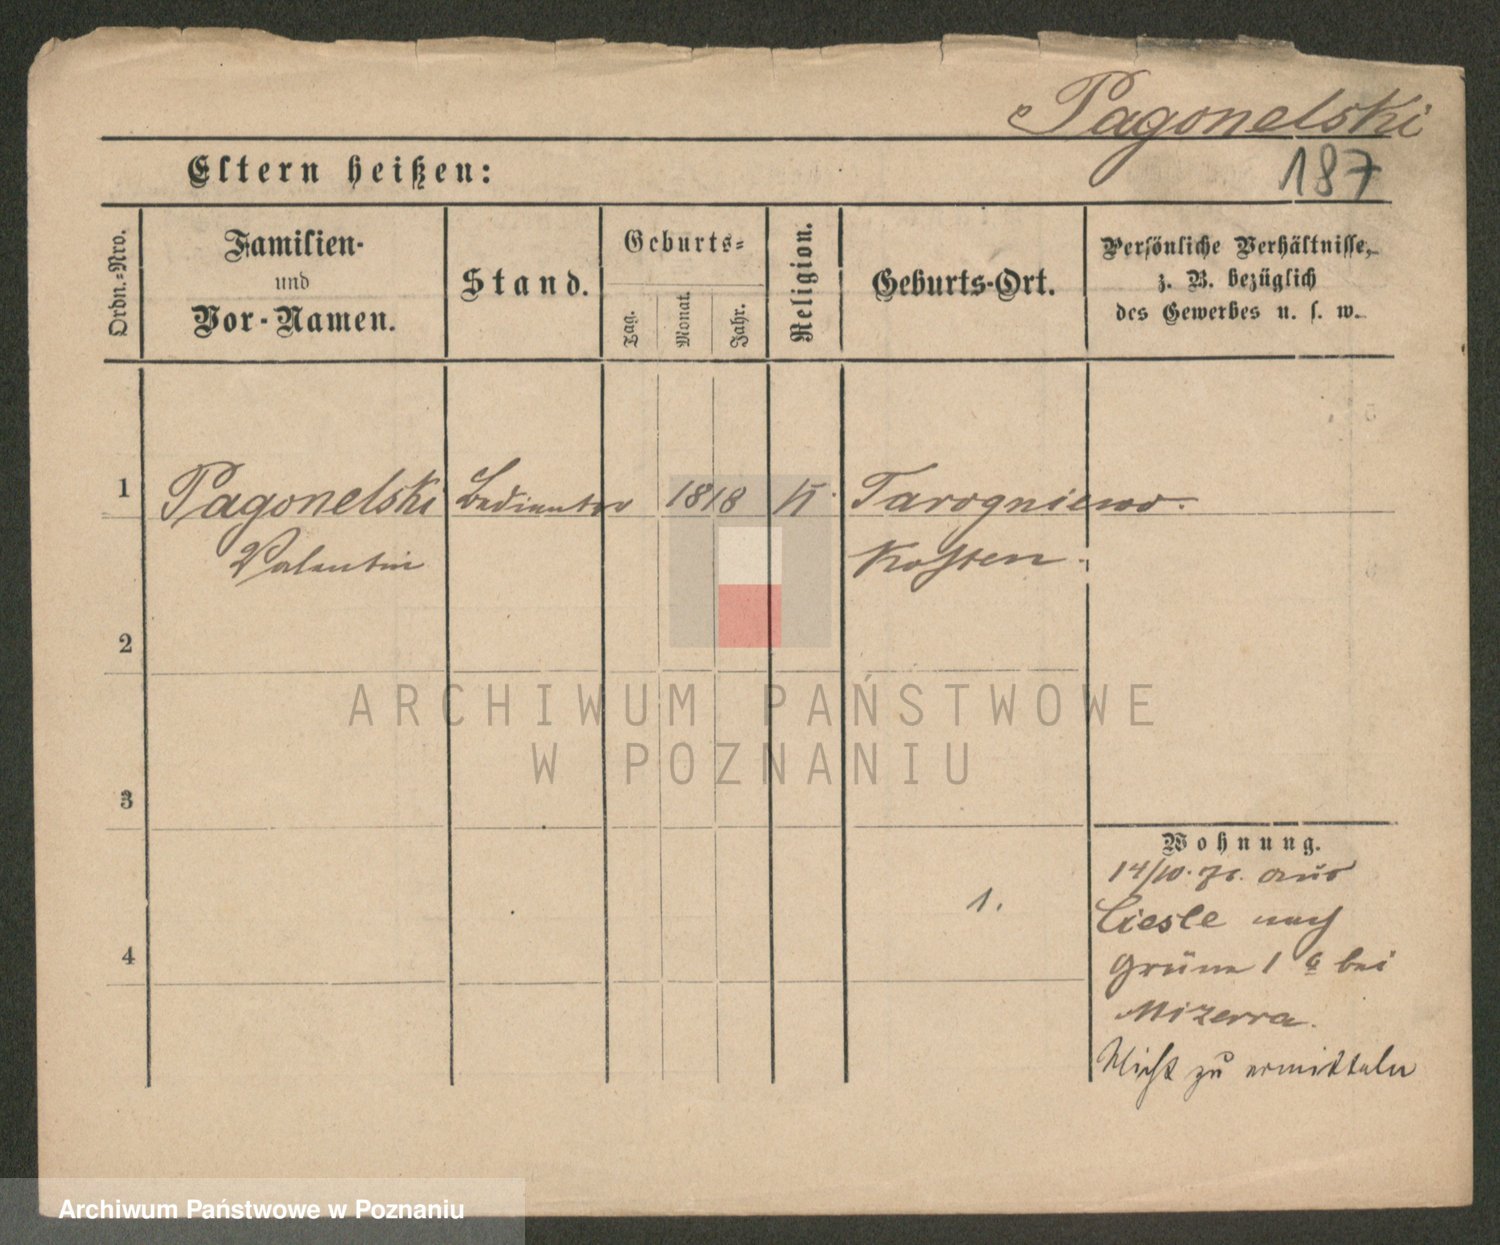 Pagonelski
187
Eltern heißen:
Ordn.-Nro.
Familien-
und
Vor-Namen.
Stand.
Geburts-
Tag.
Monat.
Jahr.
Religion.
Geburts-Ort.
Persönliche Verhältnisse,
z. B. bezüglich
des Gewerbes u. s. w.
1 Pagonelski Bedienter 1818 K. Tarogniewo.
Valentin Kosten.
2
3
4
Wohnung.
14/10. 76. aus
Ciesle nach
1.
Grüne 1 bei
Mizerra.
Nicht zu ermitteln
ARCHIWUM PAŃSTWOWE
W POZNANIU
Archiwum Państwowe w Poznaniu